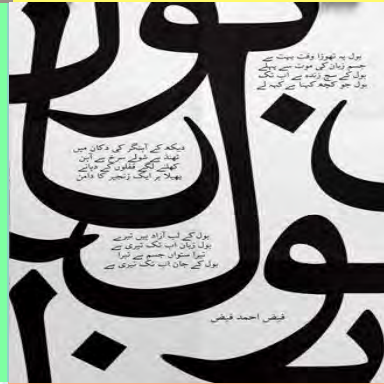 بول یہ تھوڑا وقت بہت ہے
جسم زباں کی موت سے پہلے
بول کے سچ زندہ ہے اب تک
بول جو کچھ کہنا ہے کہہ لے
دیکھ کے آہنگر کی دکان میں
تند ہے شعلے سرخ ہے آہن
کھلنے لگے قفلوں کے دہانے
پھیلا ہر ایک زنجیر کا دامن
بول کے لب آزاد ہیں تیرے
بول زبان اب تک تیری ہے
تیرا ستواں جسم ہے تیرا
بول کے جان اب تک تیری ہے
فیض احمد فیض
بول